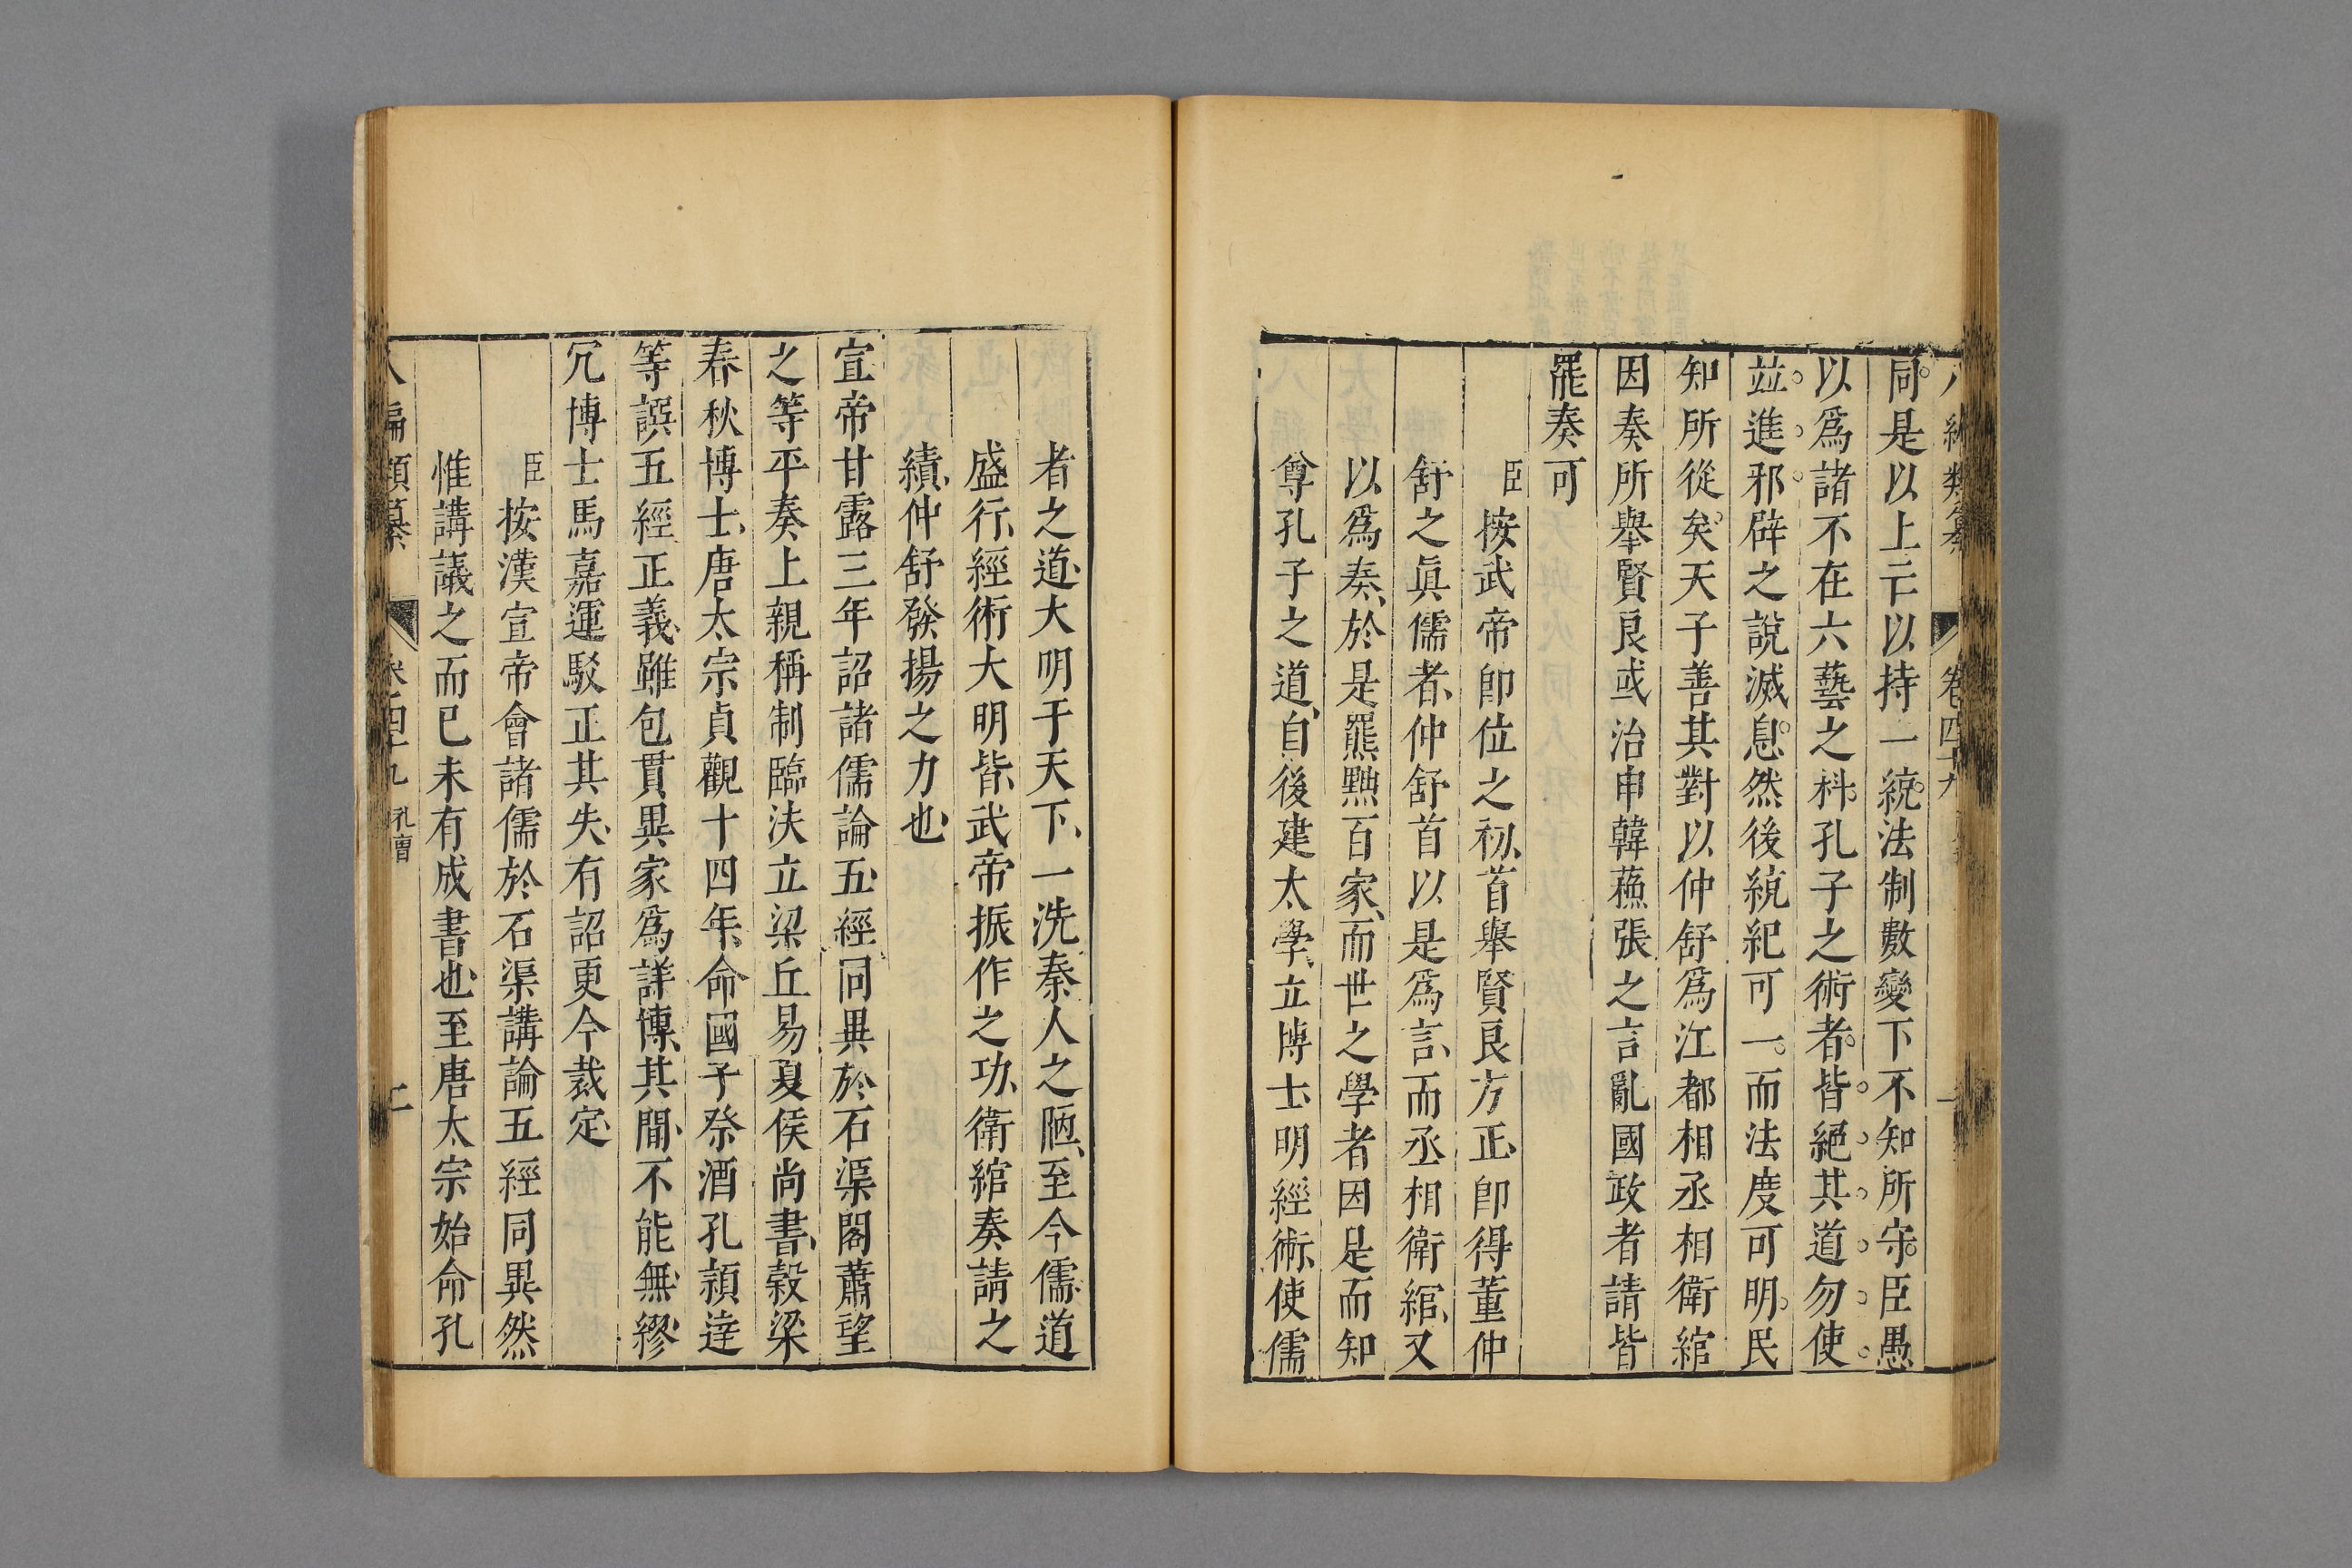 八編類纂 卷四十九
同是以上亡以持一統法制數變下不知所守臣愚
以爲諸不在六藝之科孔子之術者皆絕其道勿使
竝進邪辟之說滅息然後統紀可一而法度可明民
知所從矣天子善其對以仲舒爲江都相丞相衛綰
因奏所舉賢良或治申韓蘓張之言亂國政者請皆
罷奏可
臣按武帝卽位之初首舉賢良方正卽得董仲
舒之眞儒者仲舒首以是爲言而丞相衛綰又
以爲奏於是罷黜百家而世之學者因是而知
尊孔子之道自後建太學立博士明經術使儒
者之道大明于天下一洗秦人之陋至今儒道
盛行經術大明皆武帝振作之功衛綰奏請之
績仲舒發揚之力也
宣帝甘露三年詔諸儒論五經同異於石渠閣蕭望
之等平奏上親稱制臨決立梁丘易夏侯尚書穀梁
春秋博士唐太宗貞觀十四年命國子祭酒孔頴達
等譔五經正義雖包貫異家爲詳博其間不能無繆
冗博士馬嘉運駁正其失有詔更令裁定
臣按漢宣帝會諸儒於石渠講論五經同異然
惟講議之而已未有成書也至唐太宗始命孔
八編類纂 卷四十九 孔曹